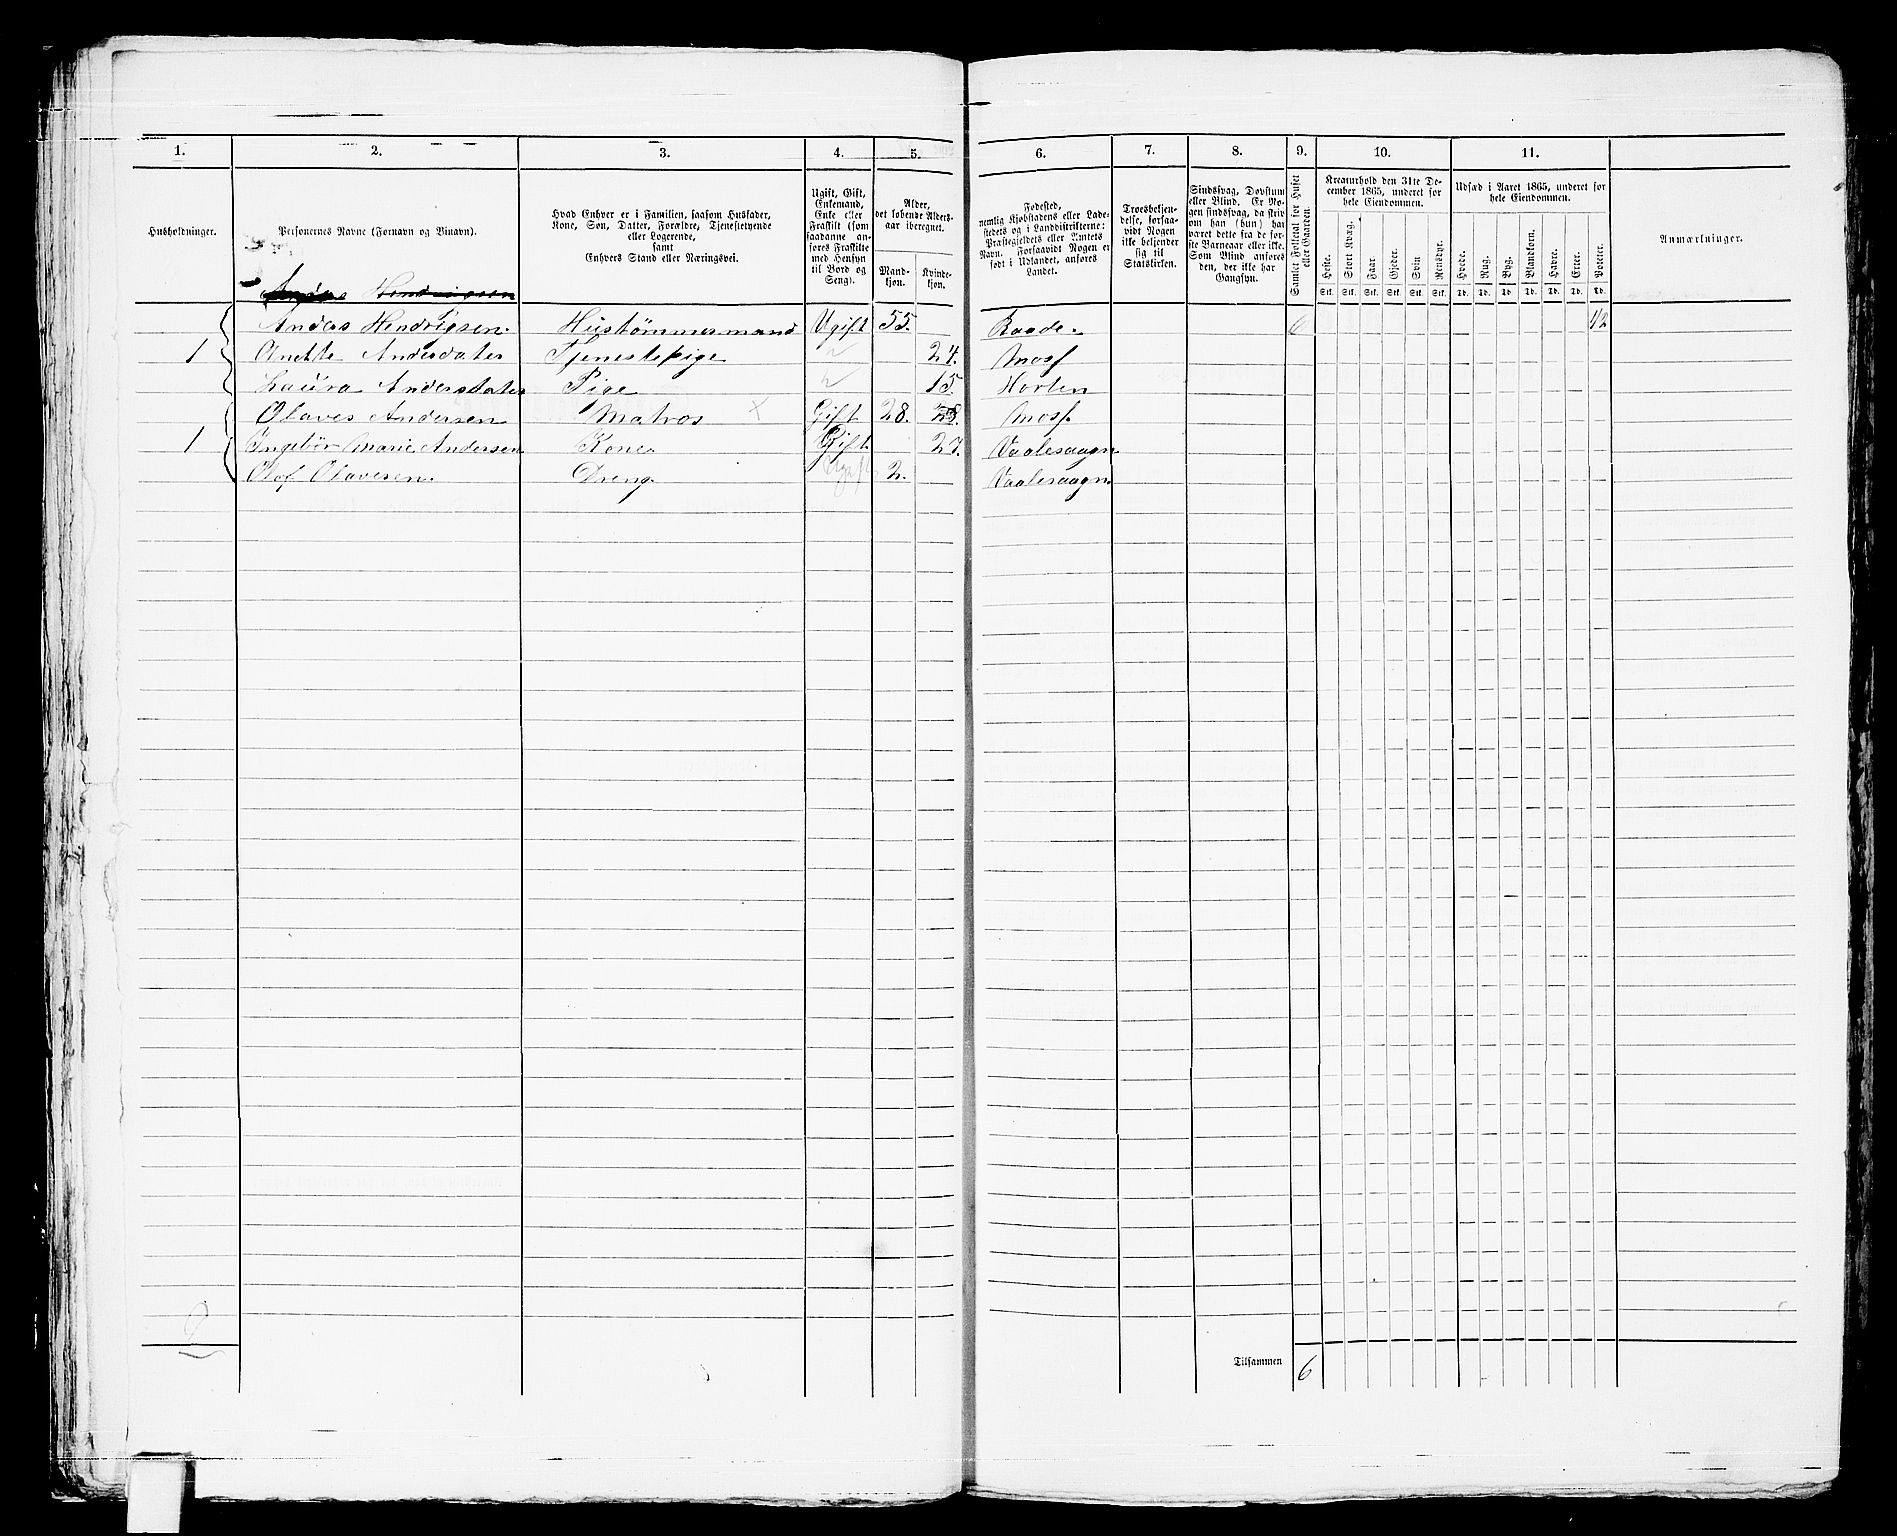 1. 2. 3. 4. 5. 6. 7. 8. 9. 10. 11.
Husholdninger.
Personernes Navne (Fornavn og Tilnavn).
Hvad Enhver er i Familien, saasom Husfader, Kone, Søn, Datter, Forældre, Tjenestetyende eller Logerende, samt Enhvers Stand eller Næringsvei.
Ugift, Gift, Enkemand, Enke eller Fraskilt (som saadanne anføres Fraskilte med Hensyn til Bord og Seng).
Alder, det løbende Alders-aar iberegnet.
Mand-kjøn. Kvinde-kjøn.
Fødested, nemlig Kjøbstadens eller Ladestedets og i Landdistrikterne: Præstegjeldets eller Amtets Navn. Forsaavidt Nogen er født i Udlandet, anføres Landet.
Troesbekjendelse, forsaavidt Nogen ikke bekjender sig til Statskirken.
Sindssvag, Døvstum eller Blind. Er Nogen sindssvag, da skriv om han (hun) har været dette fra de første Barneaar eller ikke. Som Blind anføres den, der ikke har Gangsyn.
Samlet Folketal for Huset eller Gaarden.
Kreaturhold den 31te December 1865, underet for hele Eiendommen.
Heste. Stort Kvæg. Faar. Gjeder. Svin Rensdyr.
Stk. Stk. Stk. Stk. Stk. Stk.
Udsæd i Aaret 1865, underet for hele Eiendommen.
Hvede. Rug. Byg. Blandkorn. Havre. Erter. Poteter.
Td. Td. Td. Td. Td. Td. Td.
Anmærkninger.
Anders Hendrigsen
Anders Hendrigsen. Hustømmermand Ugift 55. Raade. 6 1/2
1 Anette Andersdater Tjenestepige 24. Moss
Laura Andersdater Pige 15. Horten
Olaves Andersen Matros × Gift 28. Moss.
1 Ingebör Marie Andersen Kone Gift. 27. Vaalesaagn
Olof Olavesen. Dreng. Ugift 2. Vaalesaagn.
2
Tilsammen 6